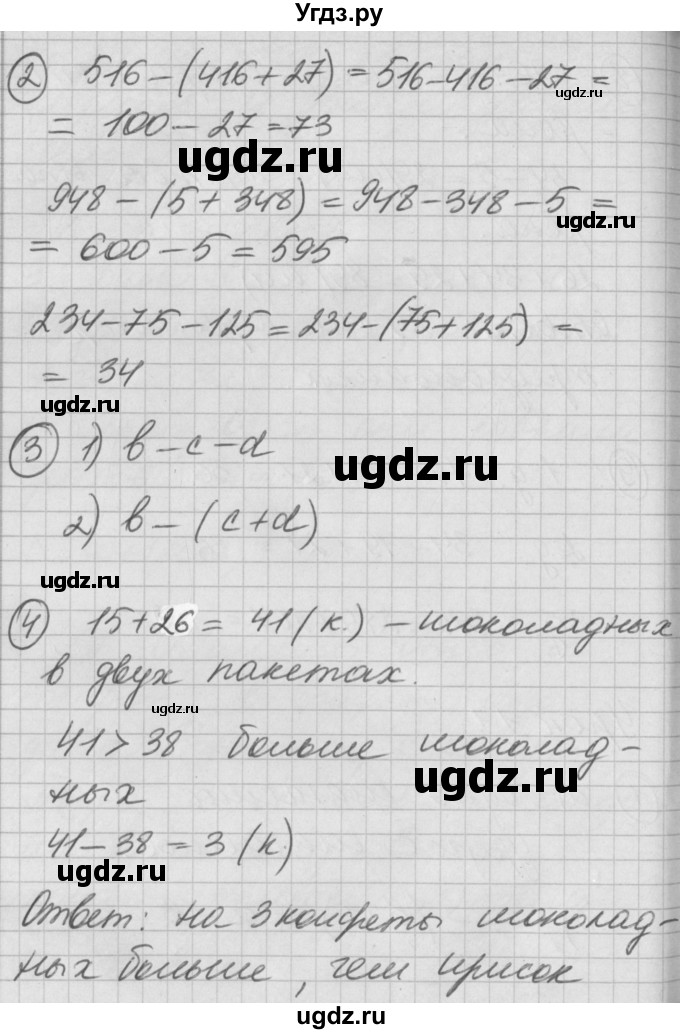 Угдз.ру
② 516 - (416 + 27) = 516 - 416 - 27 =
ugdz.ru
= 100 - 27 = 73
ugdz.ru
948 - (5 + 348) = 948 - 348 - 5 =
ugdz.ru
= 600 - 5 = 595
234 - 75 - 125 = 234 - (75 + 125) =
= 34
ugdz.ru
③ 1) b - c - d
ugdz.ru
2) b - (c + d)
ugdz.ru
④ 15 + 26 = 41 (к.) - шоколадных
в двух пакетах.
ugdz.ru
41 > 38 больше шоколад-
ugdz.ru
ных
41 - 38 = 3 (к.)
ugdz.ru
Ответ: на 3 конфеты шоколад-
ных больше, чем ирисок
ugdz.ru